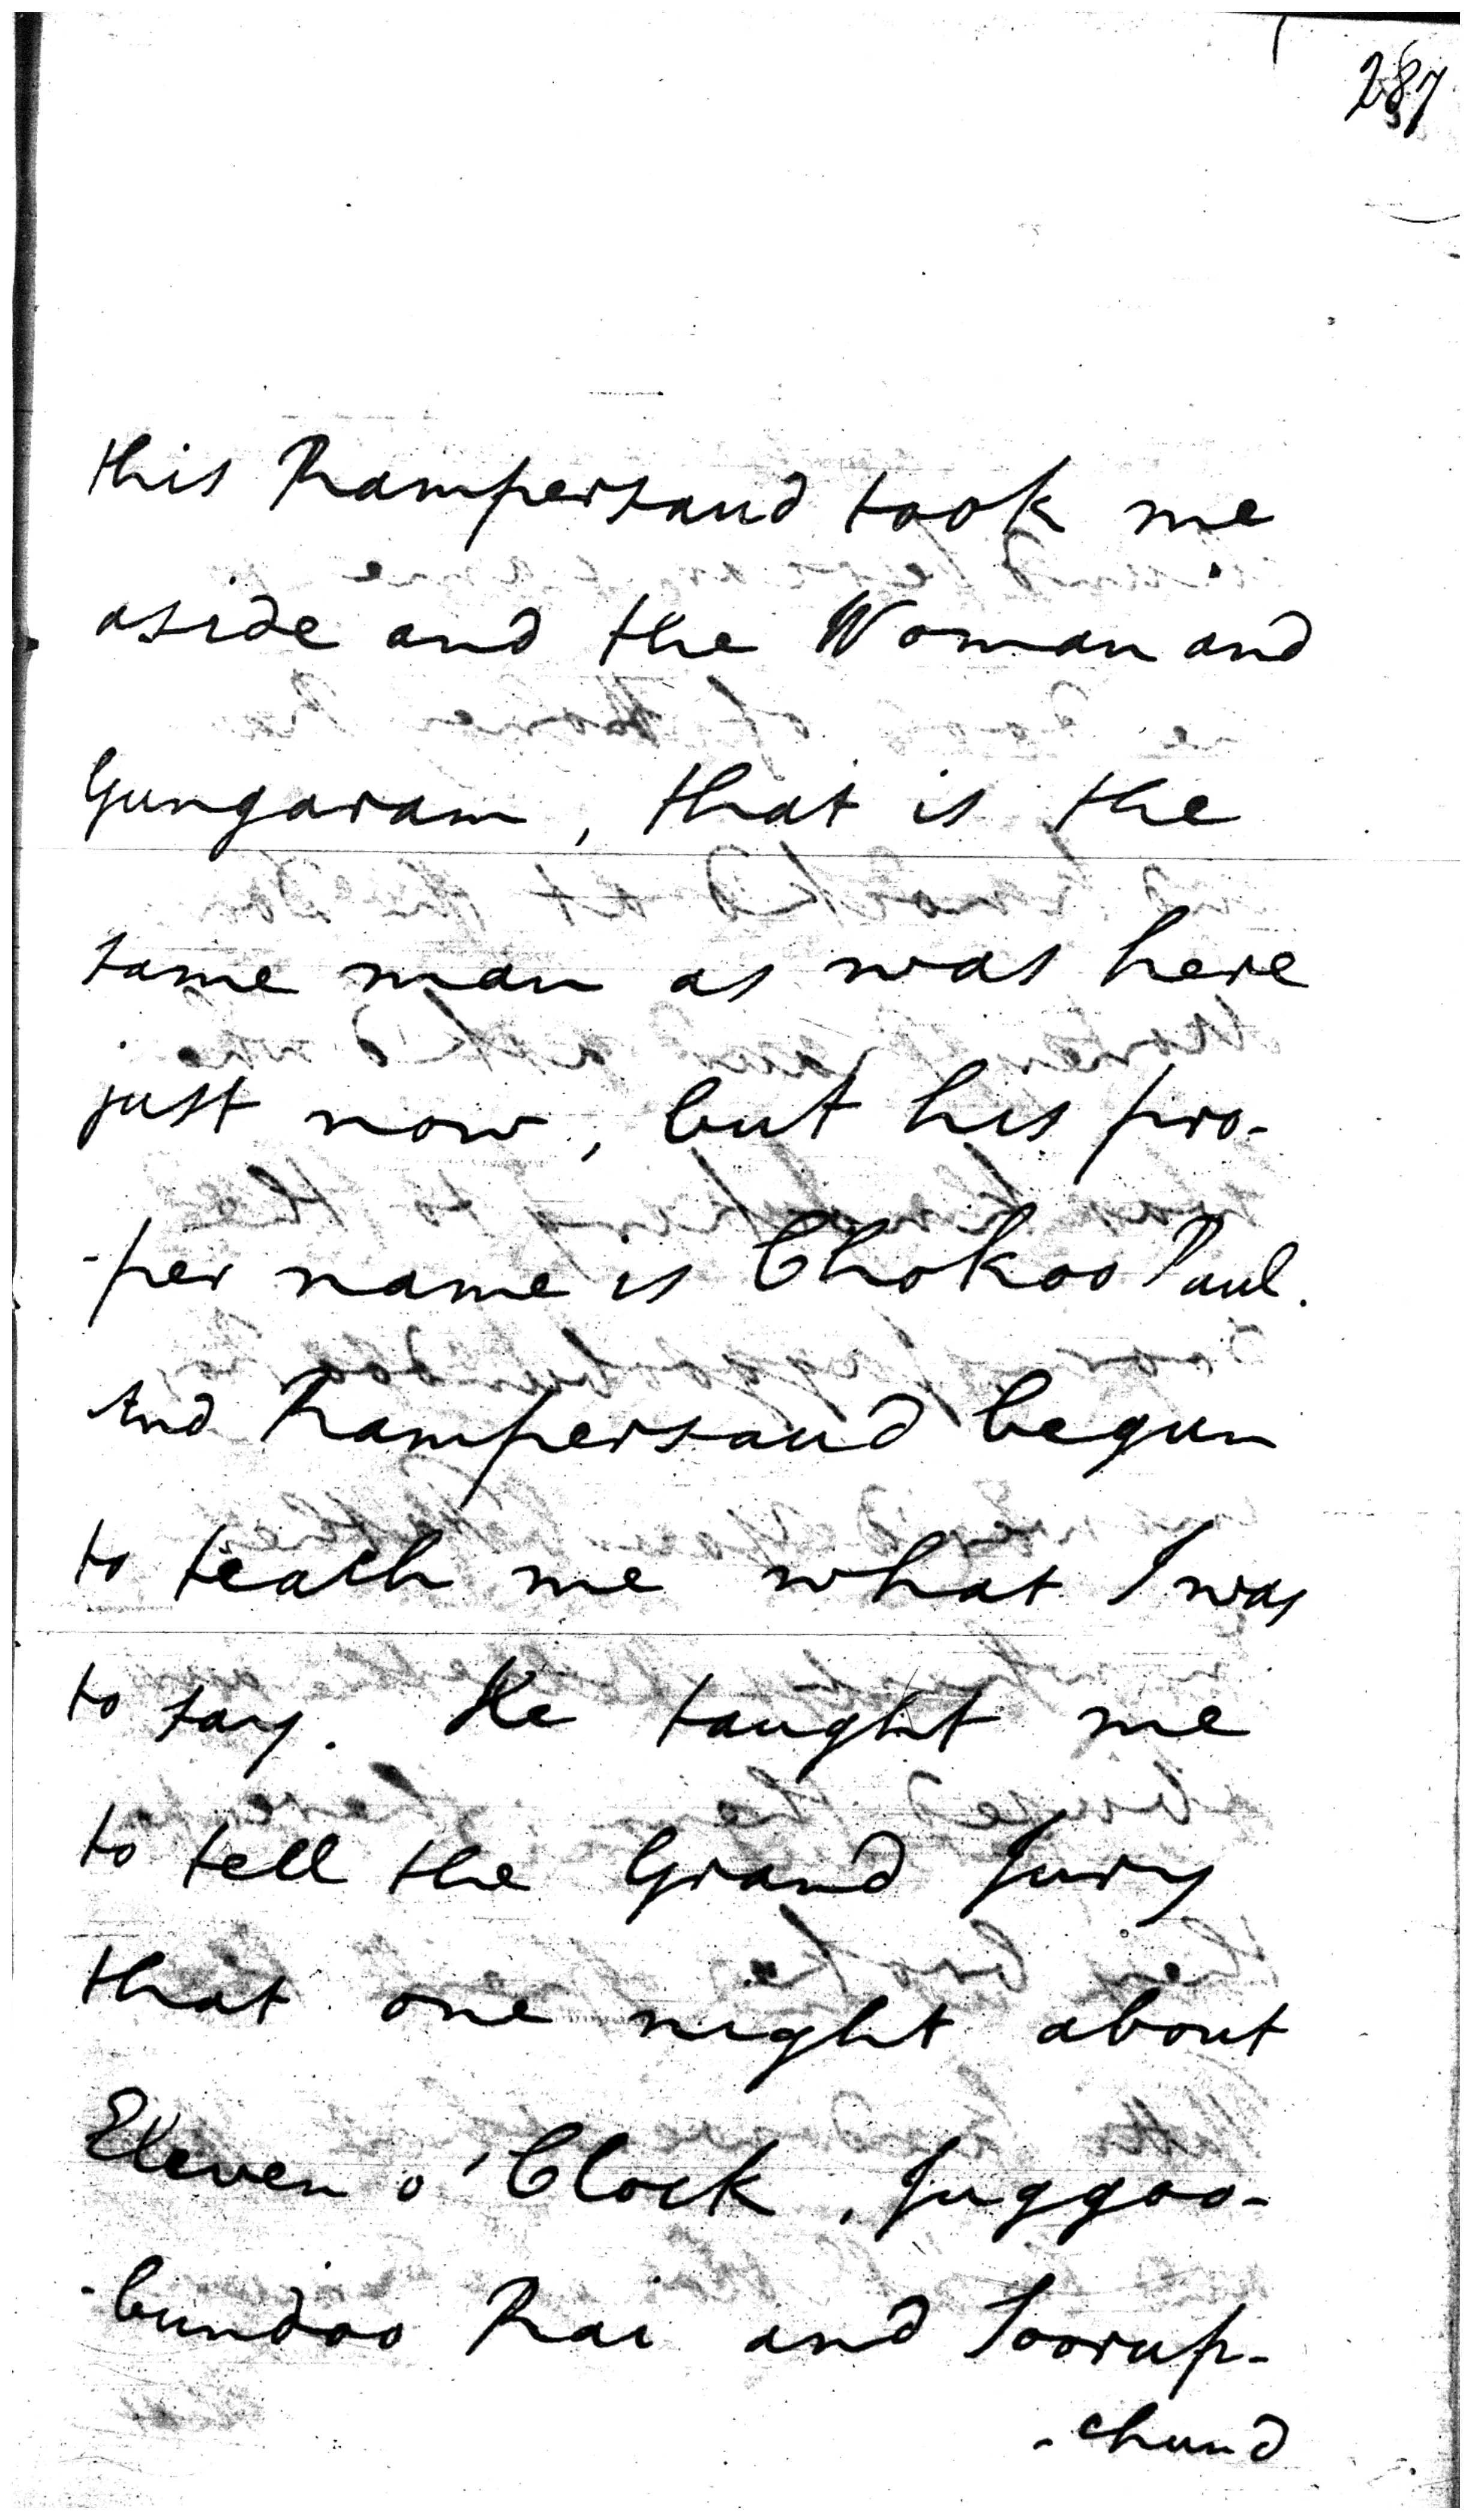 287
this Rampersaud took me
aside and the Woman and
Gungaram, that is the
same man as was here
just now, but his pro-
-per name is Chokoo Paul.
And Rampersaud begun
to teach me what I was
to say. He taught me
to tell the Grand Jury
that one night about
Eleven o'Clock, Juggoo-
-bundoo Rai and Soorup-
-chund